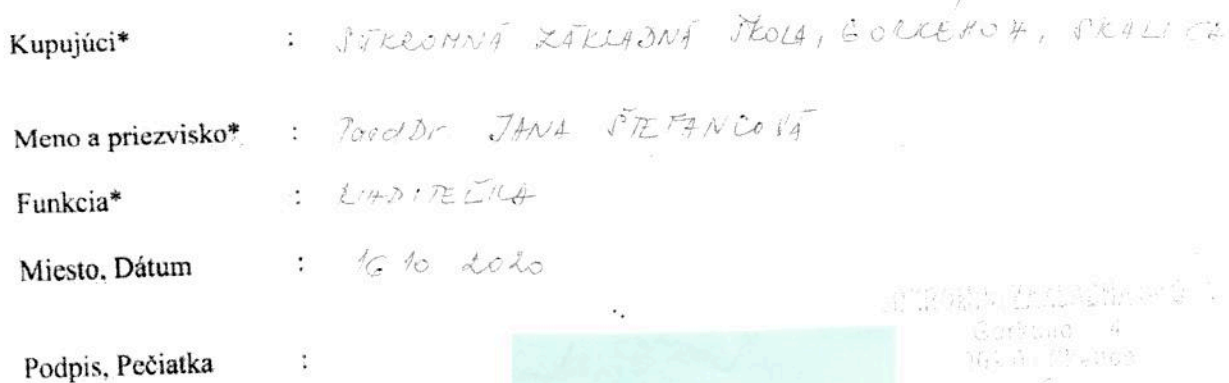 Kupujúci* : SÚKROMNÁ ZÁKLADNÁ ŠKOLA, GORKÉHO 4, SKALICA
Meno a priezvisko* : PaedDr JANA ŠTEFANCOVÁ
Funkcia* : RIADITEĽKA
Miesto, Dátum : 16 10 2020
Podpis, Pečiatka :
Gorkého 4